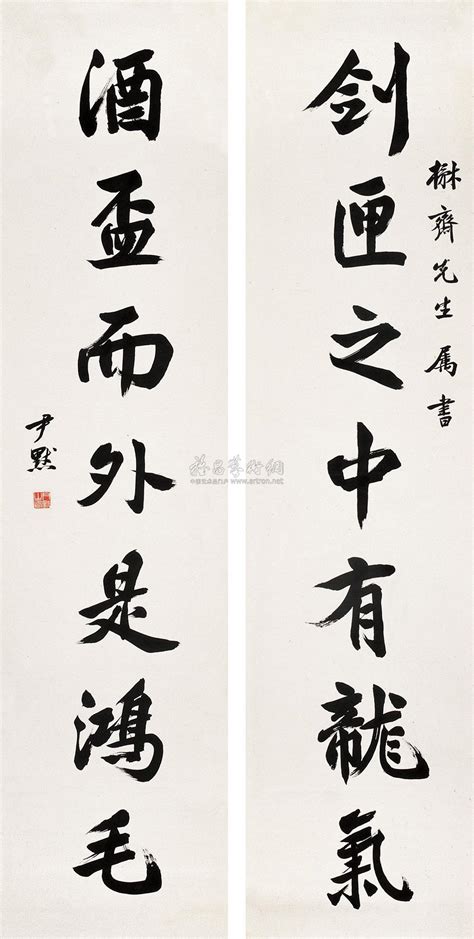 劍匣之中有龍氣
齊先生属書
酒盃而外是鴻毛
尹默
雅昌藝術網
www.artron.net